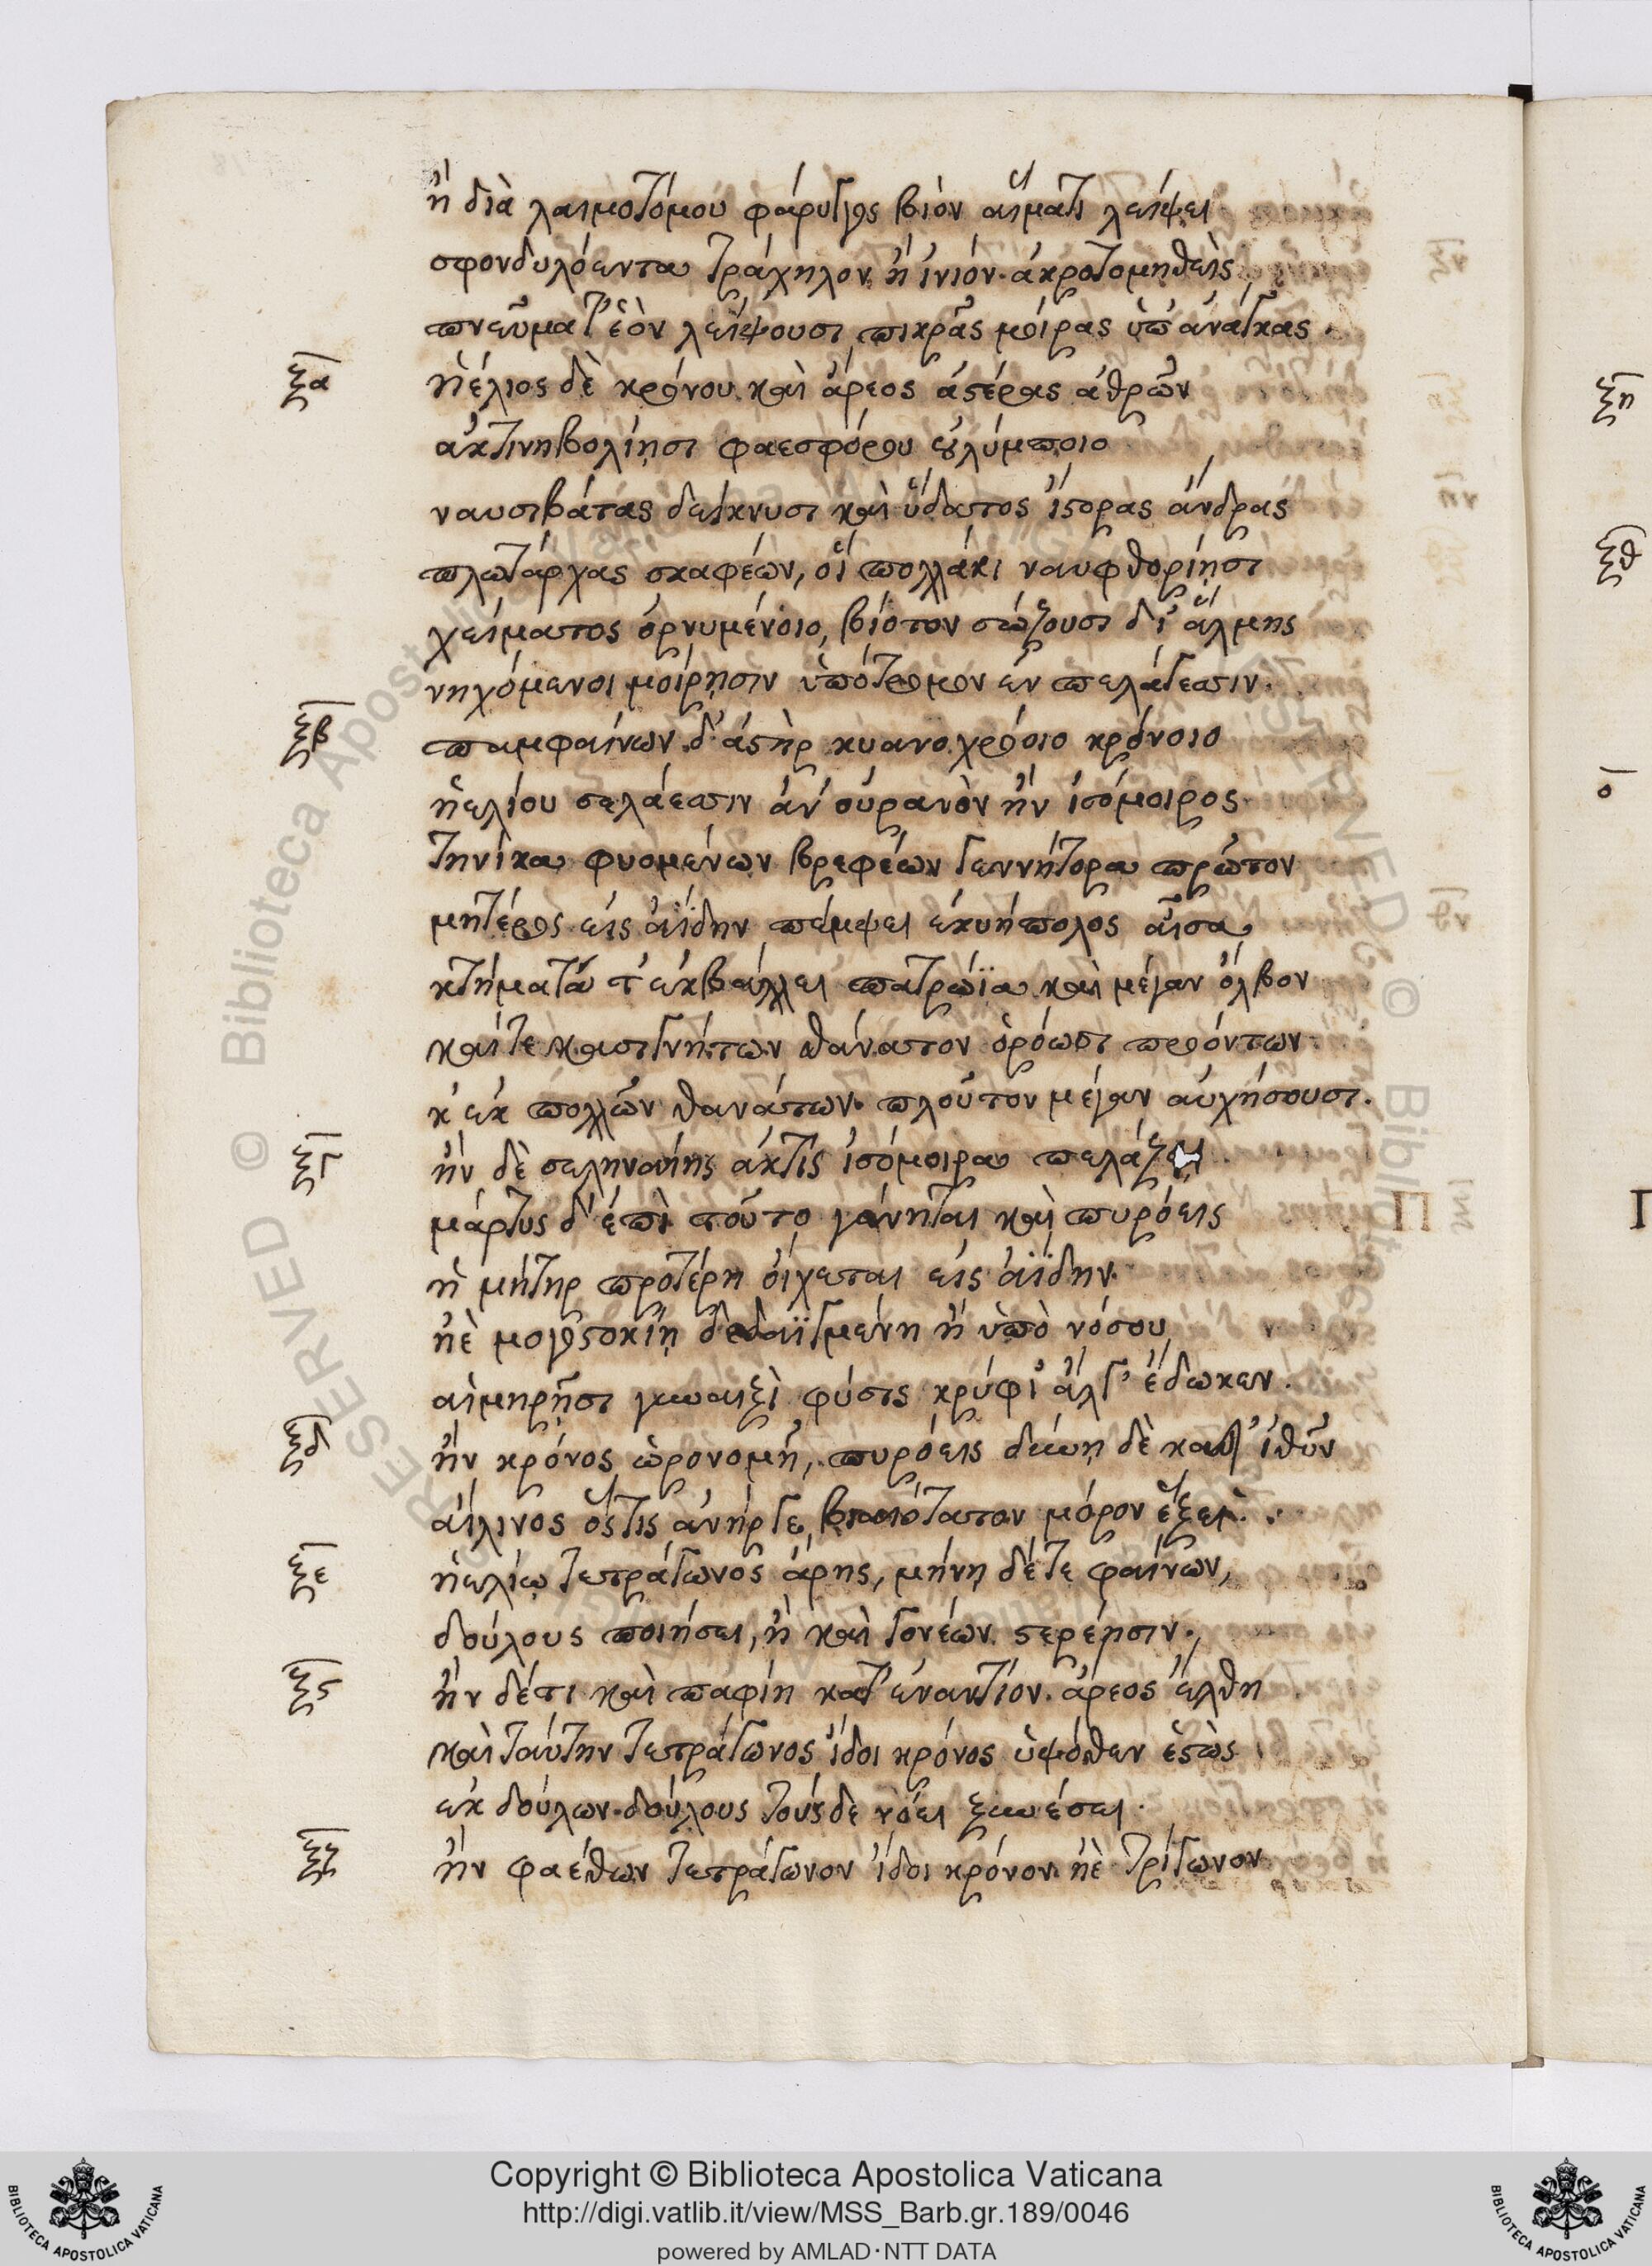 ἢ διὰ λαιμοτόμου φάρυγγος βίον αἵματι λείψει
σφονδυλόεντα τράχηλον ἢ ἰνίον ἀκροτομηθεὶς
πνεῦμα τ' ἐὸν λείψουσι πικρᾶς μοίρας ὑπ' ἀνάγκας.
ξα ἠέλιος δὲ κρόνου καὶ ἄρεος ἀστέρας ἀθρῶν
ἀκτινηβολίησι φαεσφόρου οὐλύμποιο
ναυσιβάτας δείκνυσι καὶ ὕδατος ἵστορας ἄνδρας
πλωτάρχας σκαφέων, οἳ πολλάκι ναυφθορίησι
χείματος ὀρνυμένοιο, βίοτον σώζουσι δι' ἅλμης
νηχόμενοι μοίρησιν ὑπότρομον ἐν πελάγεσιν.
ξβ παμφαίνων δ' ἀστὴρ κυανοχρόοιο κρόνοιο
ἠελίου σελάεσιν ἀν' οὐρανὸν ἢν ἰσόμοιρος
τηνίκα φυομένων βρεφέων γεννήτορα πρῶτον
μητέρος εἰς ἀΐδην πέμψει
αἶσα
κτήματά τ' ἐκβάλλει πατρώϊα καὶ μέγαν ὄλβον
καί τε κασιγνήτων θάνατον ὁρόωσι προόντων
κ' ἐκ πολλῶν θανάτων πλοῦτον μέγαν αὐχήσουσι.
ξγ ἢν δὲ σεληναίης ἀκτὶς ἰσόμοιρα πελάζει
μάρτυς δ' ἐπὶ τοῦτο γένηται καὶ πυρόεις
ἡ μήτηρ προτέρη οἴχεται εἰς ἀΐδην
ἠὲ μογοστοκίη δεδαϊγμένη ἢ ὑπὸ νόσου
αἱμηρῆσι γυναιξὶ φύσις κρύφι' ἄλγ' ἔδωκεν.
ξδ ἢν κρόνος ὡρονομῆ, πυρόεις δύνη δὲ κατ' ἰθὺν
αἴλινος ὅστις ἀνήρ γε βιαιότατον μόρον ἕξει.
ξε ἠελίῳ τετράγωνος ἄρης, μήνη δέ τε φαίνων,
δούλους ποιήσει, ἢ καὶ γονέων στερέησιν.
ξϛ ἢν δέ τι καὶ παφίη κατ' ἐναντίον ἄρεος ἔλθη
καὶ ταύτην τετράγωνος ἴδοι κρόνος ὑψόθεν ἑστὼς
ἐκ δούλων δούλους τούσδε νόει ξυνέσει.
ξζ ἢν φαέθων τετράγωνον ἴδοι κρόνον ἠὲ τρίγωνον
ξη
ξθ
ο
Copyright © Biblioteca Apostolica Vaticana
http://digi.vatlib.it/view/MSS_Barb.gr.189/0046
powered by AMLAD·NTT DATA